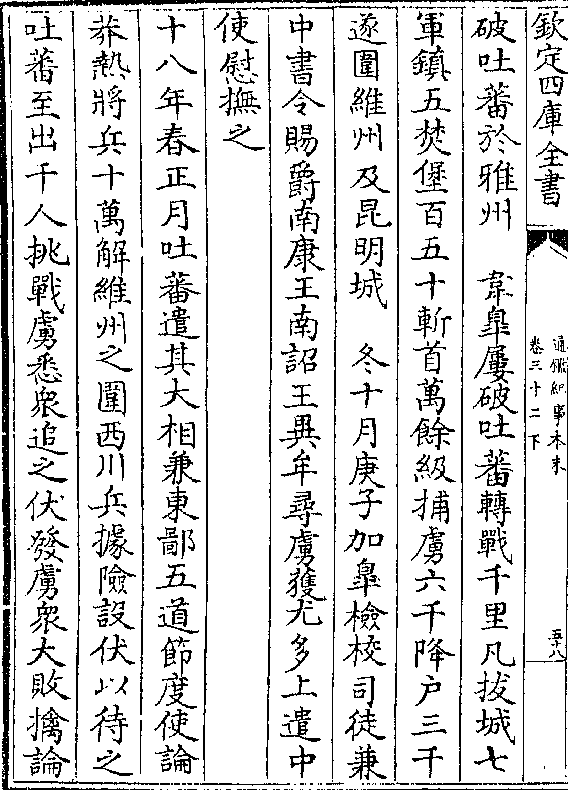 欽定四庫全書
通鑑紀事本末
卷三十二下
五十八
破吐蕃於雅州　韋臯屢破吐蕃轉戰千里凡拔城七
軍鎮五焚堡百五十斬首萬餘級捕虜六千降户三千
遂圍維州及昆明城　冬十月庚子加臯檢校司徒兼
中書令賜爵南康王南詔王異牟尋虜獲尤多上遣中
使慰撫之
十八年春正月吐蕃遣其大相兼東鄙五道節度使論
莽熱將兵十萬解維州之圍西川兵據險設伏以待之
吐蕃至出千人挑戰虜悉衆追之伏發虜衆大敗擒論